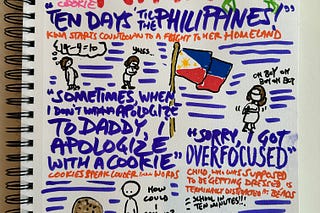 COOKIE
"TEN DAYS 'TIL THE PHILIPPINES!"
KINA STARTS COUNTDOWN TO A FLIGHT TO HER HOMELAND
YAAS..
OH BOY OH
BOY OH BOY
"SOMETIMES, WHEN
I DON'T WANNA APOLOGIZE
TO DADDY, I
APOLOGIZE
WITH A COOKIE"
COOKIES SPEAK LOUDER THAN WORDS
"SORRY, I GOT
OVERFOCUSED"
CHILD WHO WAS SUPPOSED
TO BE GETTING DRESSED IS
TERMINALLY DISTRACTED BY BEADS
SCHOOL IN
TEN MINUTES!!
HOW
COULD
I